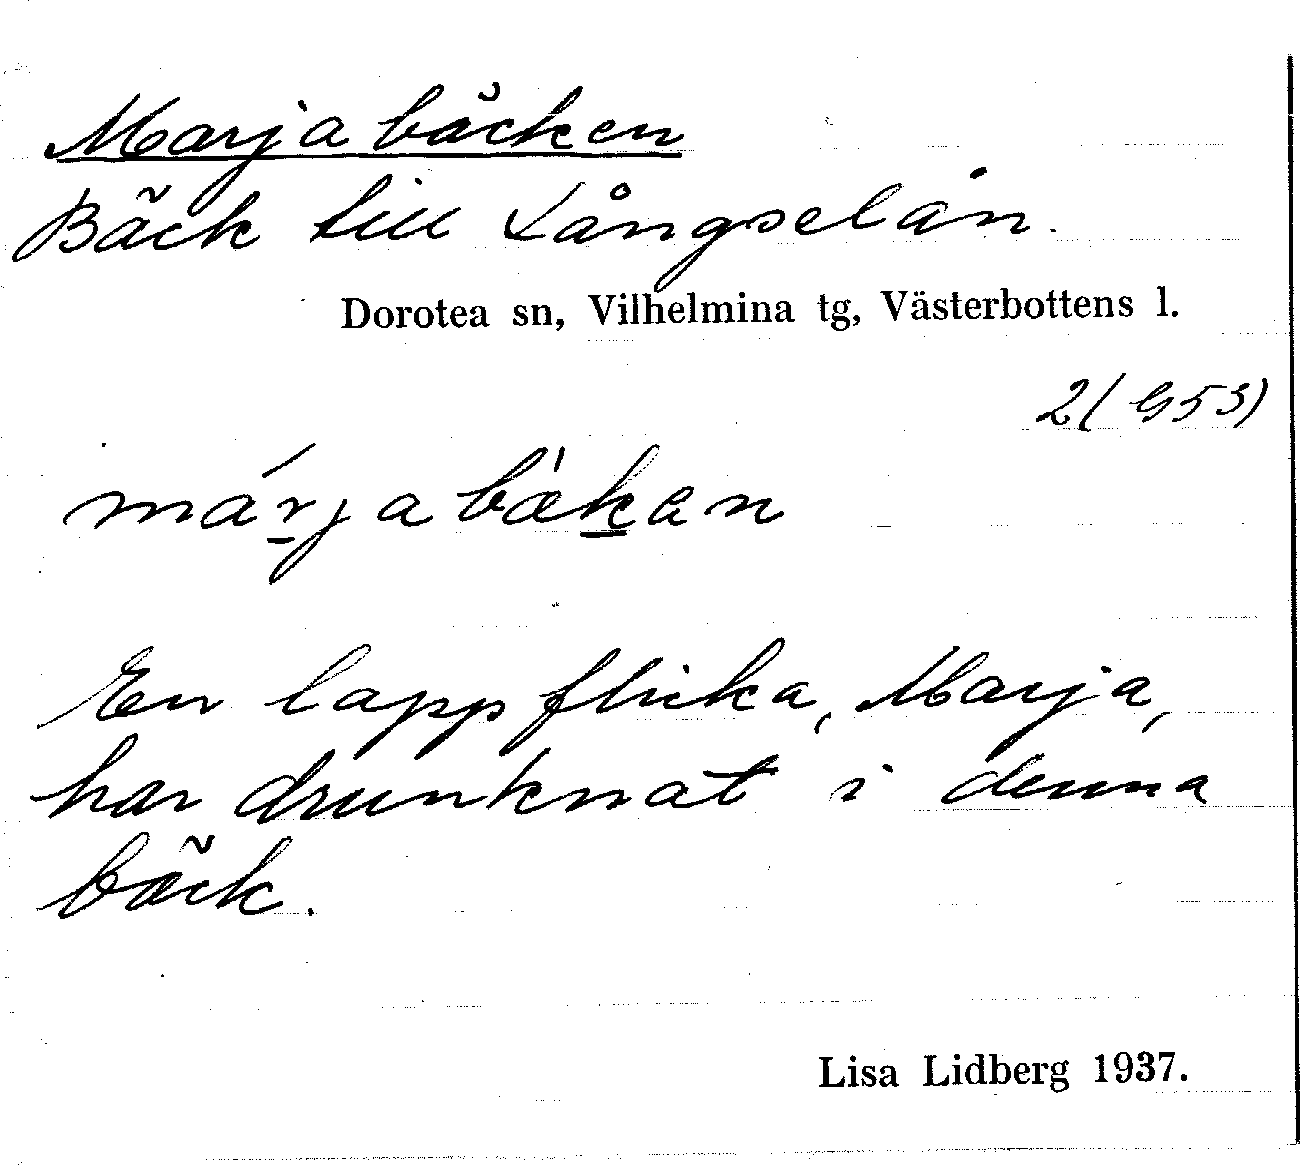 Marjabäcken
Bäck till Långselån.
Dorotea sn, Vilhelmina tg, Västerbottens l.
2( G53)
márjabǽkan
En lappflicka, Marja,
har drunknat i denna
bäck.
Lisa Lidberg 1937.